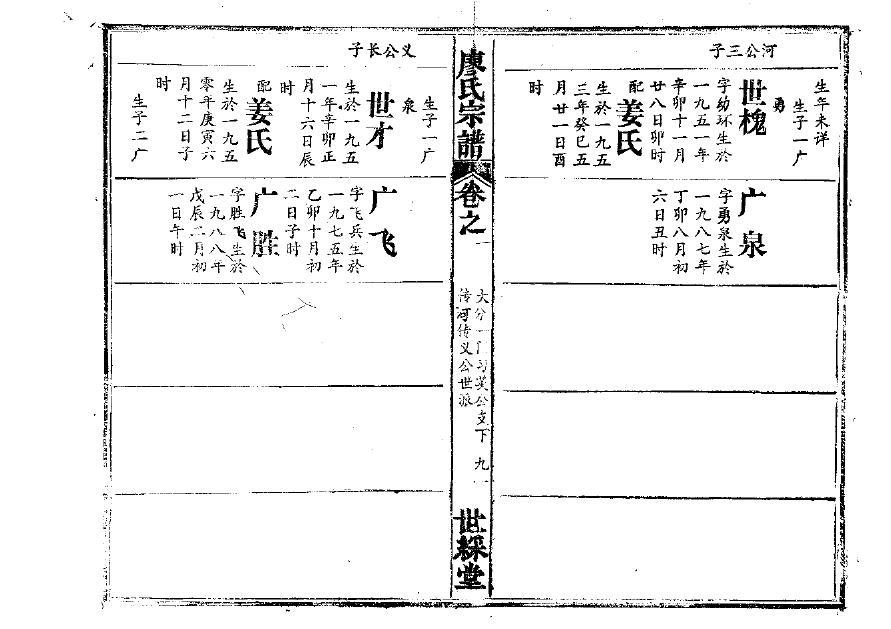 河公三子
生年未详
生子一广
勇
世槐
字幼环生於
一九五一年
辛卯十一月
廿八日卯时
配姜氏
生於一九五
三年癸巳五
月廿一日酉
时
广泉
字勇泉生於
一九八七年
丁卯八月初
六日丑时
廖氏宗譜
卷之一
大分一门习英公支下 九一
传河传义公世派
世綵堂
义公长子
生子一广
泉
世才
生於一九五
一年辛卯正
月十六日辰
时
配姜氏
生於一九五
零年庚寅六
月十二日子
时
生子二广
广飞
字飞兵生於
一九七五年
乙卯十月初
二日子时
广胜
字胜飞生於
一九八八年
戊辰二月初
一日午时